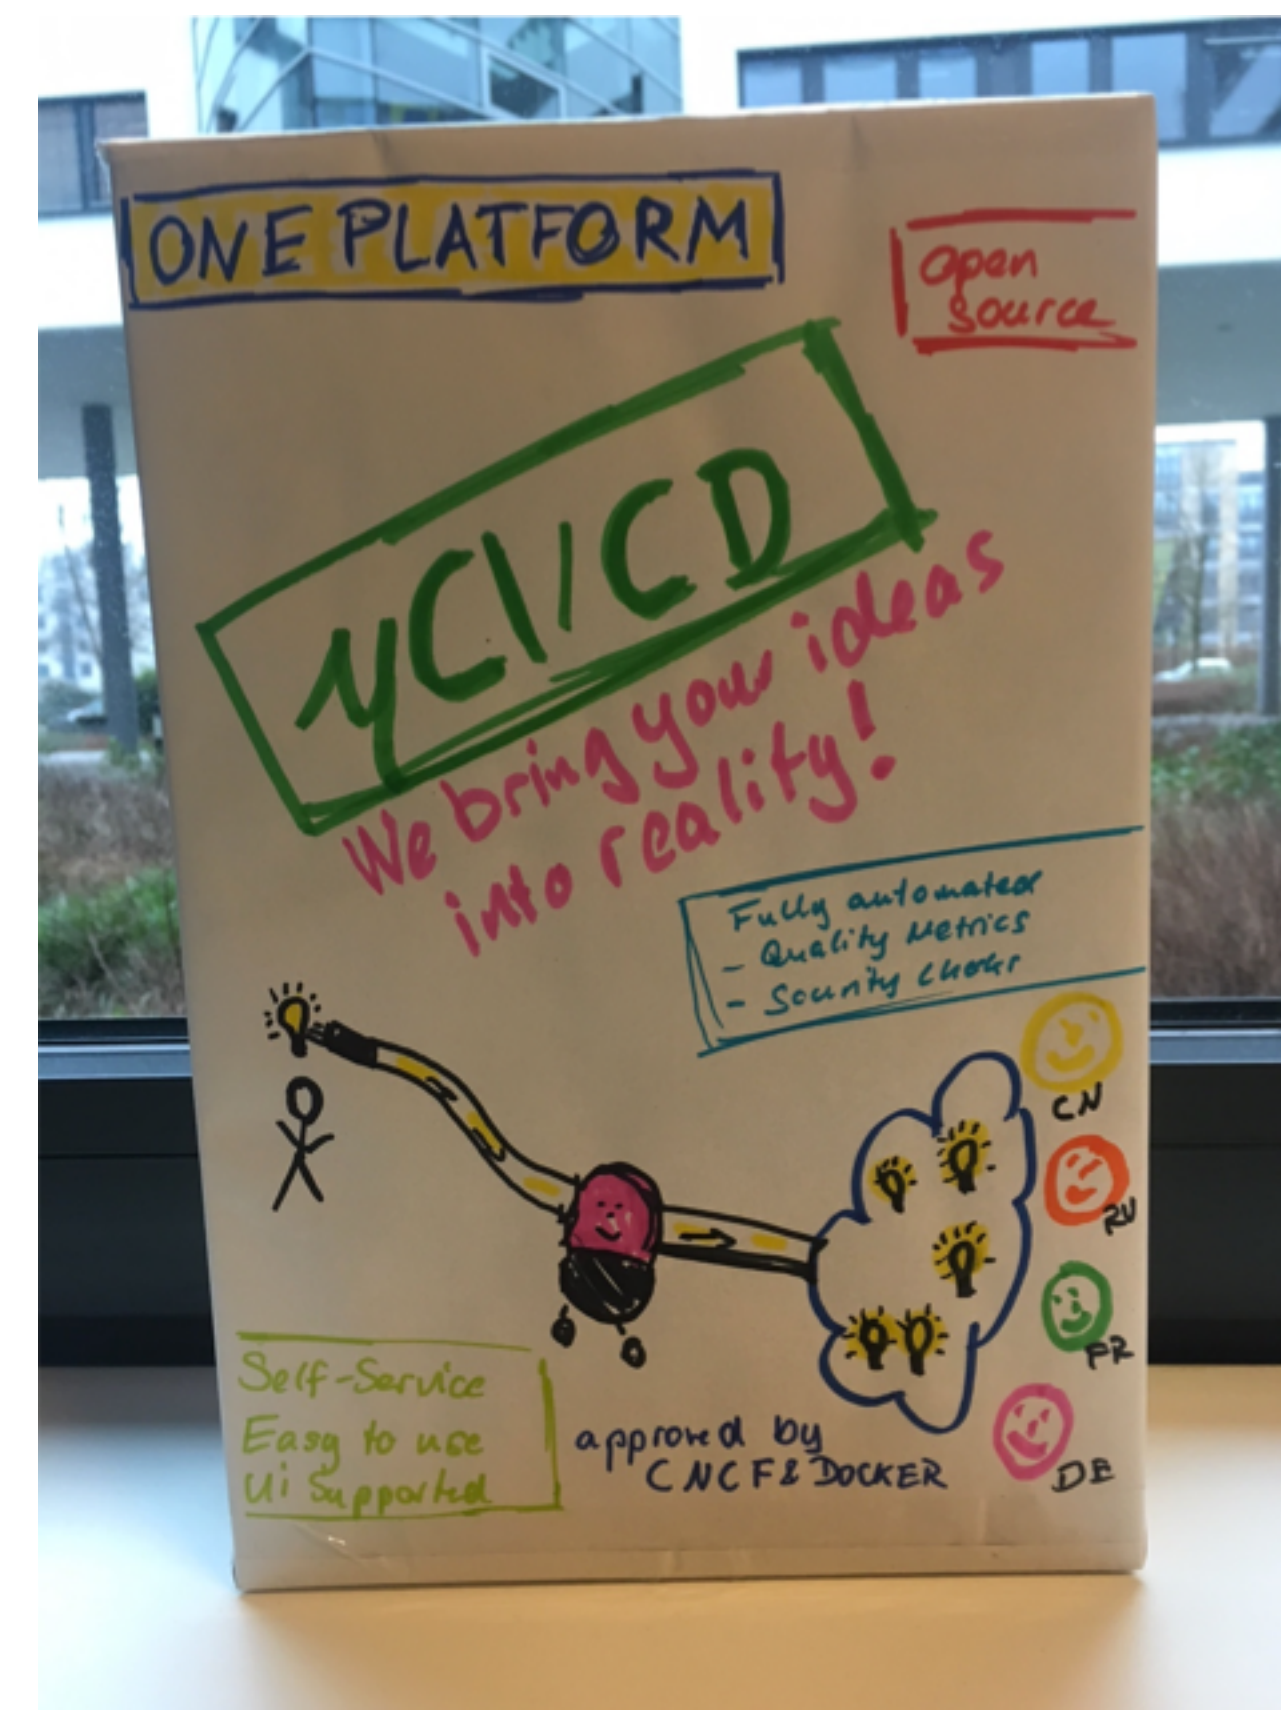 ONE PLATFORM
open
source
yCI/CD
We bring your ideas
into reality!
Fully automated
- Quality Metrics
- Security checks
CN
RU
FR
DE
Self-Service
Easy to use
Ui Supported
approved by
CNCF & DOCKER